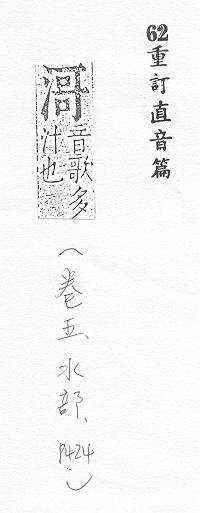 62重訂直音篇
滒
音歌多
汁也
（卷五、水部、P424.）